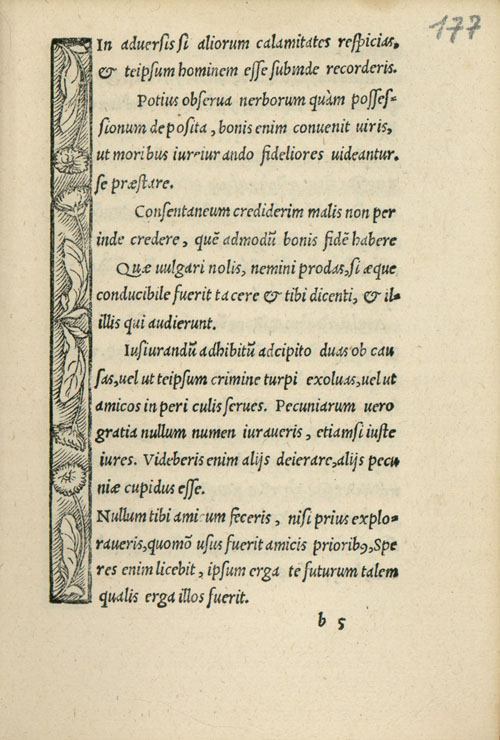 177
In adversis si aliorum calamitates respicias,
& teipsum hominem esse subinde recorderis.
Potius observa nerborum quàm posses-
sionum deposita, bonis enim convenit uiris,
ut moribus iureiurando fideliores uideantur.
se præstare.
Consentaneum crediderim malis non per
inde credere, quẽ admodũ bonis fidẽ habere
Quæ uulgari nolis, nemini prodas, si æque
conducibile fuerit tacere & tibi dicenti, & il-
illis qui audierunt.
Iusiurandũ adhibitũ adcipito duas ob cau
sas, uel ut teipsum crimine turpi exoluas, uel ut
amicos in periculis serues. Pecuniarum uero
gratia nullum numen iuraueris, etiamsi iuste
iures. Videberis enim alijs deierare, alijs pecu
niæ cupidus esse.
Nullum tibi amicum feceris, nisi prius explo-
raueris, quomõ usus fuerit amicis prioribꝰ, Spe
res enim licebit, ipsum erga te futurum talem
qualis erga illos fuerit.
b 5